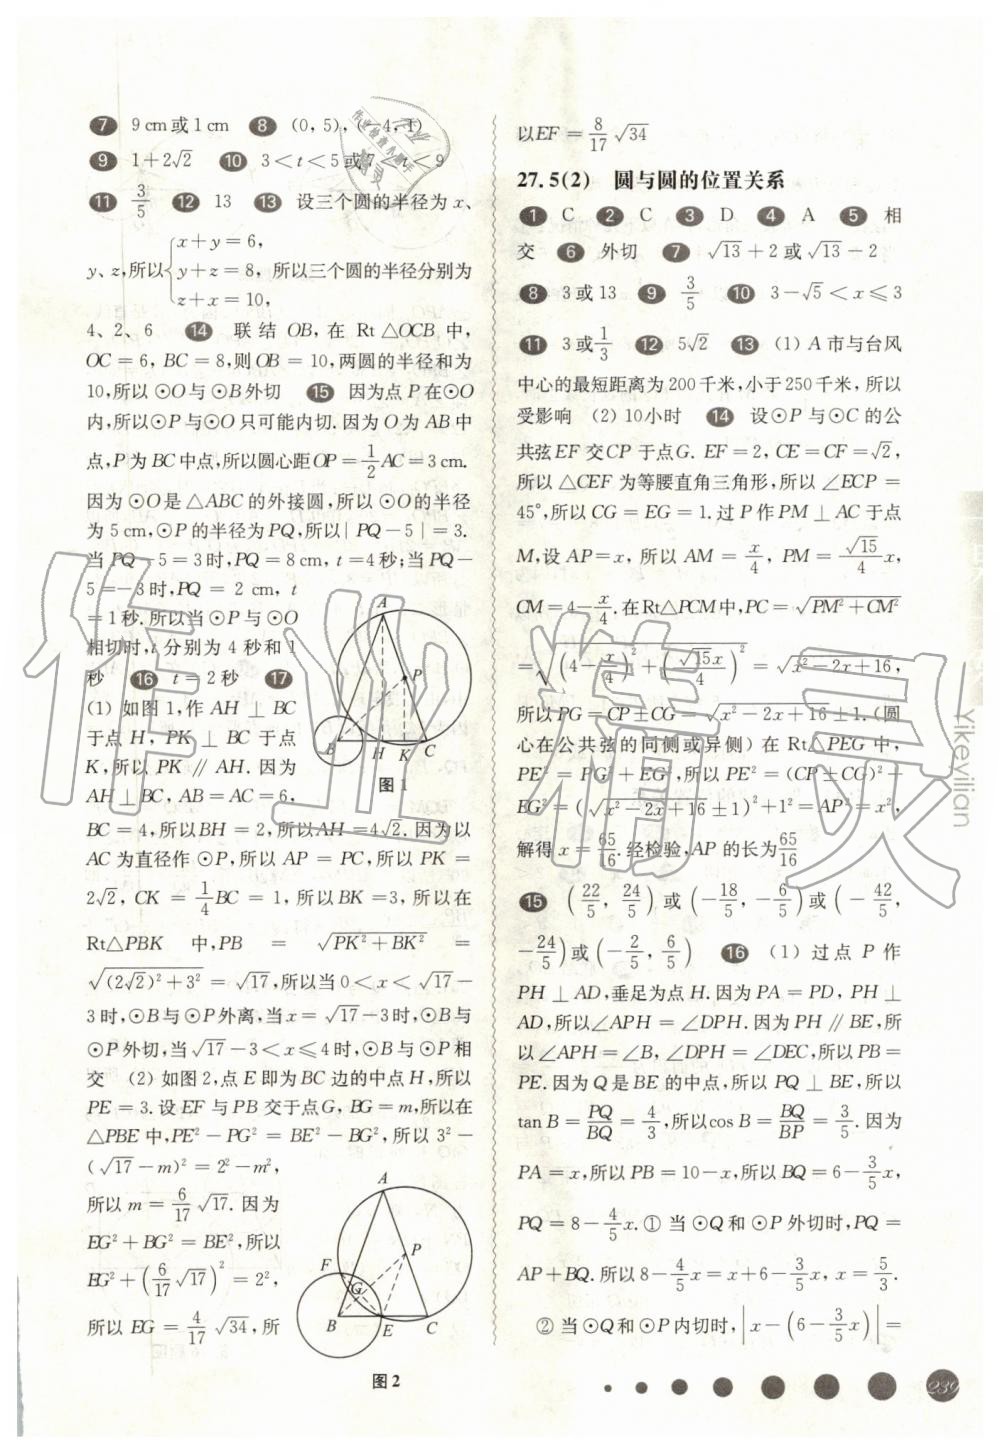 7 9 cm或1 cm 8 (0, 5), (-4, 1)
9 1+2√2 10 3<t<5或7<t<9
11 3/5 12 13 13 设三个圆的半径为x、
y、z,所以{x+y=6, y+z=8, z+x=10, 所以三个圆的半径分别为
4、2、6 14 联结OB,在 Rt△OCB中,
OC=6, BC=8,则OB=10,两圆的半径和为
10,所以⊙O与⊙B外切 15 因为点P在⊙O
内,所以⊙P与⊙O只可能内切.因为O为AB中
点,P为BC中点,所以圆心距OP=1/2AC=3 cm.
因为⊙O是△ABC的外接圆,所以⊙O的半径
为5 cm,⊙P的半径为PQ,所以|PQ-5|=3.
当PQ-5=3时,PQ=8 cm, t=4秒;当PQ-
5=-3时,PQ=2 cm, t
=1秒.所以当⊙P与⊙O
相切时,t分别为4秒和1
秒 16 t=2秒 17
(1) 如图1,作AH⊥BC
于点H, PK⊥BC于点
K,所以PK∥AH.因为
AH⊥BC, AB=AC=6,
A
P
B H K C
图1
BC=4,所以BH=2,所以AH=4√2.因为以
AC为直径作⊙P,所以AP=PC,所以PK=
2√2, CK=1/4BC=1,所以BK=3,所以在
Rt△PBK中,PB=√(PK²+BK²)=
√((2√2)²+3²)=√17,所以当0<x<√17-
3时,⊙B与⊙P外离,当x=√17-3时,⊙B与
⊙P外切,当√17-3<x≤4时,⊙B与⊙P相
交 (2) 如图2,点E即为BC边的中点H,所以
PE=3.设EF与PB交于点G, BG=m,所以在
△PBE中,PE²-PG²=BE²-BG²,所以3²-
(√17-m)²=2²-m²,
所以m=6/17√17.因为
EG²+BG²=BE²,所以
EG²+(6/17√17)²=2²,
所以EG=4/17√34,所
A
F P
G
B E C
图2
以EF=8/17√34
27.5(2) 圆与圆的位置关系
1 C 2 C 3 D 4 A 5 相
交 6 外切 7 √13+2或√13-2
8 3或13 9 3/5 10 3-√5<x≤3
11 3或1/3 12 5√2 13 (1) A市与台风
中心的最短距离为200千米,小于250千米,所以
受影响 (2) 10小时 14 设⊙P与⊙C的公
共弦EF交CP于点G. EF=2, CE=CF=√2,
所以△CEF为等腰直角三角形,所以∠ECP=
45°,所以CG=EG=1.过P作PM⊥AC于点
M,设AP=x,所以AM=x/4, PM=√15/4x,
CM=4-x/4.在Rt△PCM中,PC=√(PM²+CM²)
=√((4-x/4)²+(√15x/4)²)=√(x²-2x+16),
所以PG=CP±CG=√(x²-2x+16)±1.(圆
心在公共弦的同侧或异侧)在Rt△PEG中,
PE²=PG²+EG²,所以PE²=(CP±CG)²+
EG²=(√(x²-2x+16)±1)²+1²=AP²=x²,
解得x=65/6.经检验,AP的长为65/16
15 (22/5, 24/5)或(-18/5, -6/5)或(-42/5,
-24/5)或(-2/5, 6/5) 16 (1) 过点P作
PH⊥AD,垂足为点H.因为PA=PD, PH⊥
AD,所以∠APH=∠DPH.因为PH∥BE,所
以∠APH=∠B, ∠DPH=∠DEC,所以PB=
PE.因为Q是BE的中点,所以PQ⊥BE,所以
tan B=PQ/BQ=4/3,所以cos B=BQ/BP=3/5.因为
PA=x,所以PB=10-x,所以BQ=6-3/5x,
PQ=8-4/5x.① 当⊙Q和⊙P外切时,PQ=
AP+BQ.所以8-4/5x=x+6-3/5x, x=5/3.
② 当⊙Q和⊙P内切时,|x-(6-3/5x)|=
239
作业精灵
Yikevilian